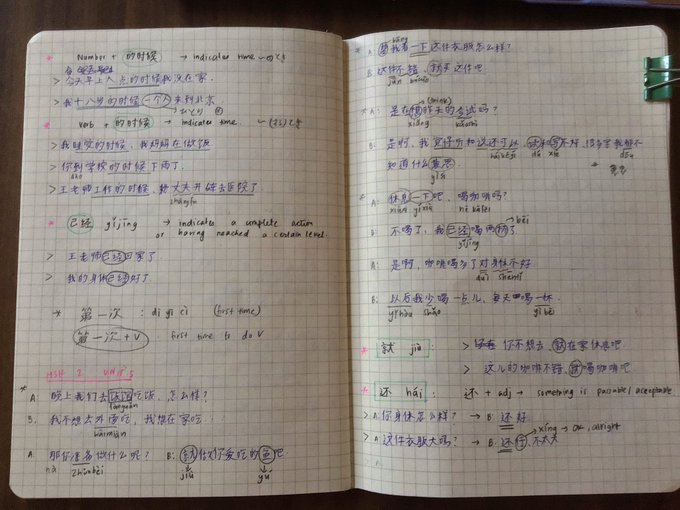 * Number + 的时候 → indicates time ~のとき
> 今天早上八点的时候我没在家.
> 我十八岁的时候一个人来到北京
ひとり
* Verb + 的时候 → indicates time ~(する)とき
> 我睡觉的时候, 我妈妈在做饭
> 你到学校的时候下雨了.
dào
> 王老师工作的时候, 她丈夫开车去医院了
zhàngfu
* 已经 yǐjīng → indicates a complete action
or having reached a certain level.
> 王老师已经回家了.
> 我的身体已经好了.
* 第一次 : dì yī cì (first time)
第一次 + V : first time to do V
HSK 2 UNIT 5
* A: 晚上我们去饭馆吃饭, 怎么样?
fànguǎn
B. 我不想去外面吃, 我想在家吃.
wàimiàn
A: 那你准备做什么呢? B: 就做你爱吃的鱼吧
nà zhǔnbèi jiù yú
bāng
* A: 帮我看一下这件衣服怎么样?
B. 这件不错, 就买这件吧.
jiàn búcuò
(think)
* A: 是在想昨天的考试吗?
xiǎng kǎoshì
B: 是的, 我觉得听和说还可以, 读和写不好, 很多字我都不
háikěyǐ dú xiě dōu
知道什么意思.
yìsi
* A: 休息一下吧, 喝咖啡吗?
xiūxi yíxià hē kāfēi
B: 不喝了, 我已经喝两杯了.
bēi
yǐjīng
A: 是啊, 咖啡喝多了对身体不好.
duì shēntǐ
B: 以后我少喝一点儿, 每天喝一杯.
yǐhòu shǎo yì bēi
* 就 jiù > 你不想去, 就在家休息吧
> 这儿的咖啡不错, 就喝咖啡吧.
* 还 hái : 还 + adj → something is passable/acceptable
> A: 你身体怎么样? → B: 还好
xíng → OK, alright
> A: 这件衣服大吗? → B: 还行, 不太大